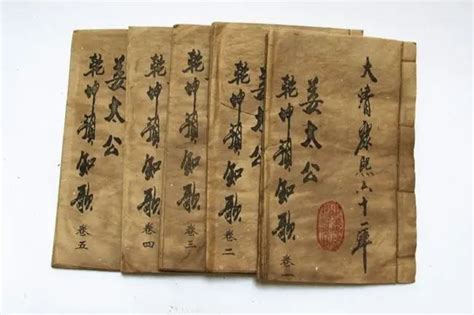 大清康熙六十二年
姜太公
乾坤預知歌 卷一
乾坤預知歌 卷二
乾坤預知歌 卷三
乾坤預知歌 卷四
姜太公
乾坤預知歌 卷五